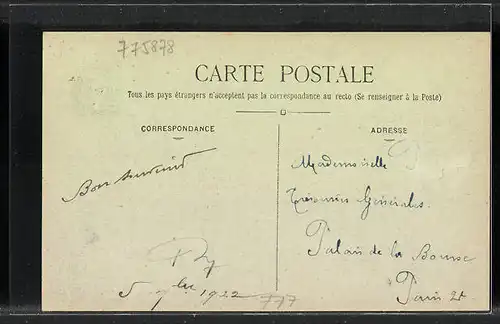 775878
CARTE POSTALE
Tous les pays étrangers n'acceptent pas la correspondance au recto (Se renseigner à la Poste)
CORRESPONDANCE
ADRESSE
Bon souvenir
Mademoiselle
Générales
Palais de la Bourse
Paris 2e
5 1922
777